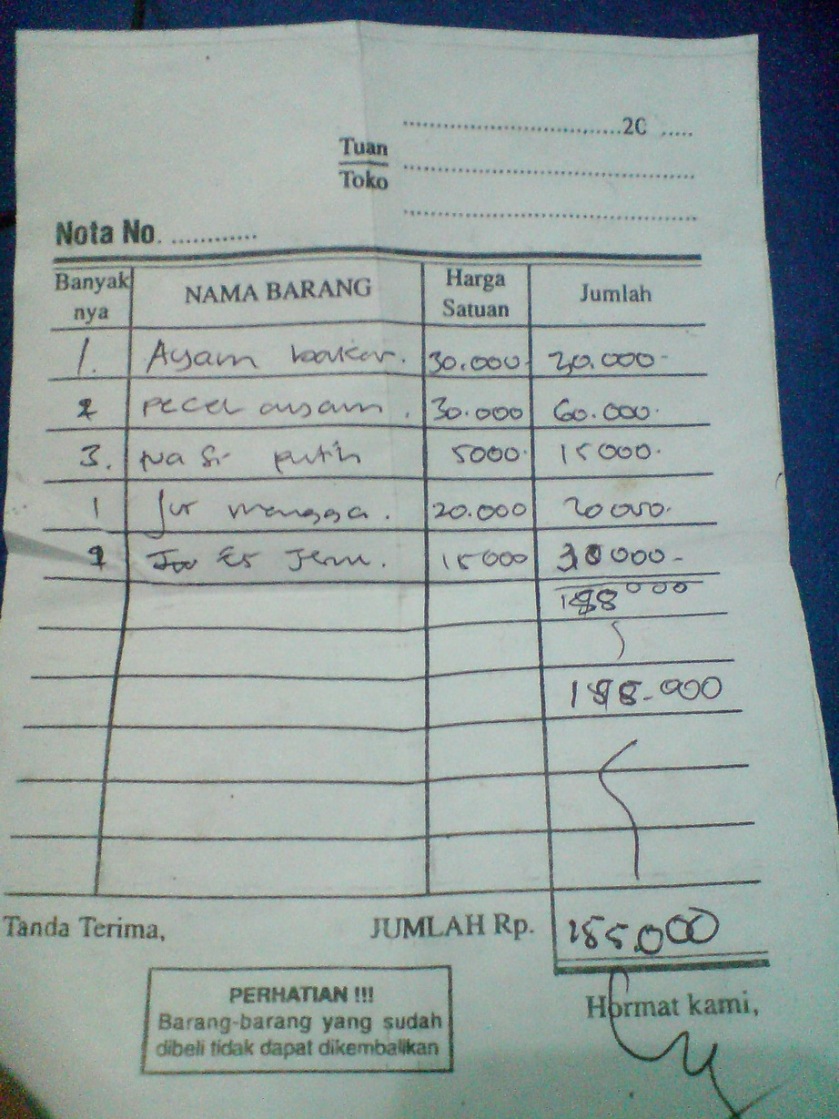 ....................................20 .....
Tuan
Toko
Nota No. .............
Banyak nya NAMA BARANG Harga Satuan Jumlah
1. Ayam bakar. 30.000 30.000-
2 pecel ayam. 30.000 60.000.
3. Nasi putih 5000. 15000.
1 Jus mangga. 20.000 20000.
2 Es Jeruk. 15000 30000-
155.000
Tanda Terima, JUMLAH Rp. 155.000
PERHATIAN !!!
Barang-barang yang sudah
dibeli tidak dapat dikembalikan
Hormat kami,